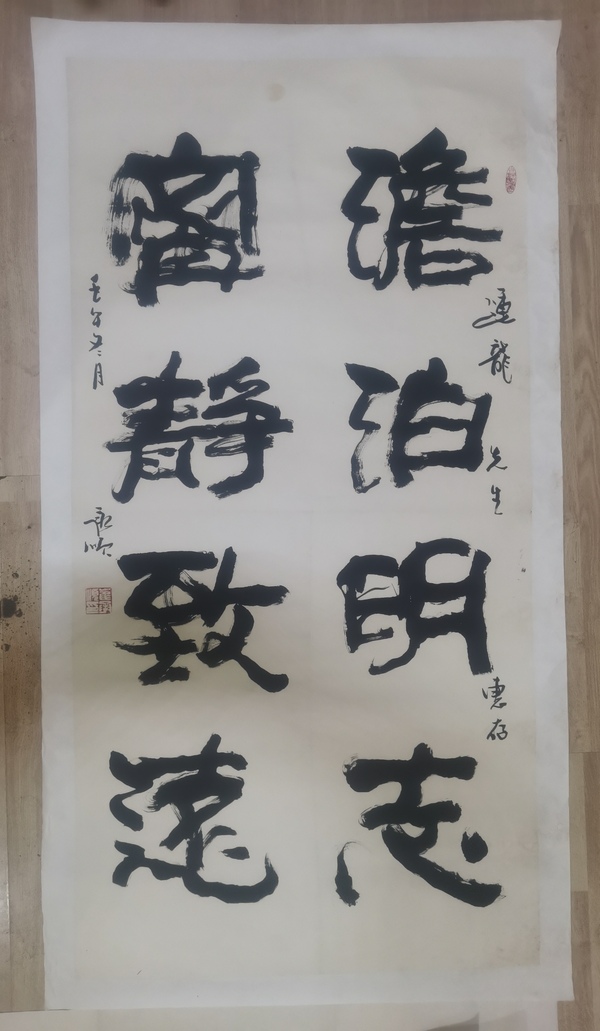 澹泊明志
龍先生惠存
寧靜致遠
壬午冬月